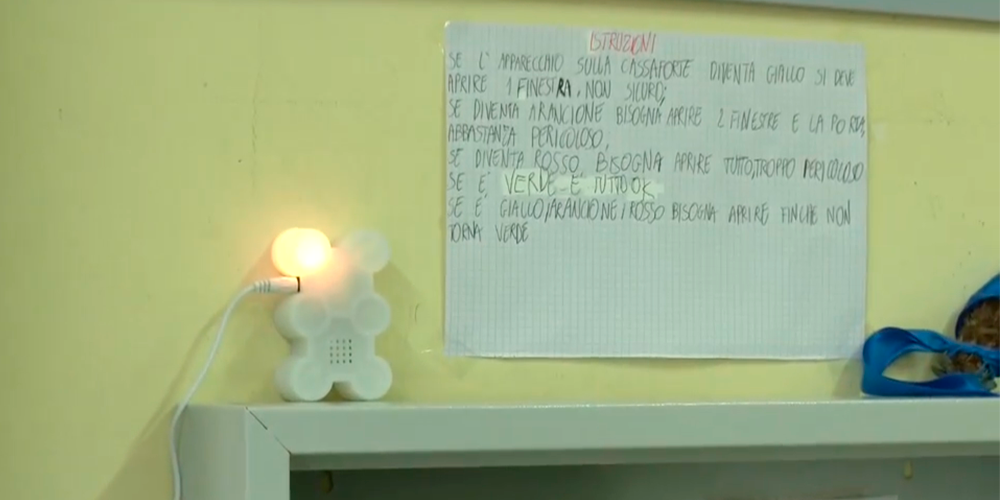 ISTRUZIONI
SE L' APPARECCHIO SULLA CASSAFORTE DIVENTA GIALLO SI DEVE
APRIRE 1 FINESTRA, NON SICURO;
SE DIVENTA ARANCIONE BISOGNA APRIRE 2 FINESTRE E LA PORTA,
ABBASTANZA PERICOLOSO;
SE DIVENTA ROSSO BISOGNA APRIRE TUTTO, TROPPO PERICOLOSO
SE E' VERDE E' TUTTO OK
SE E' GIALLO/ARANCIONE/ROSSO BISOGNA APRIRE FINCHE NON
TORNA VERDE